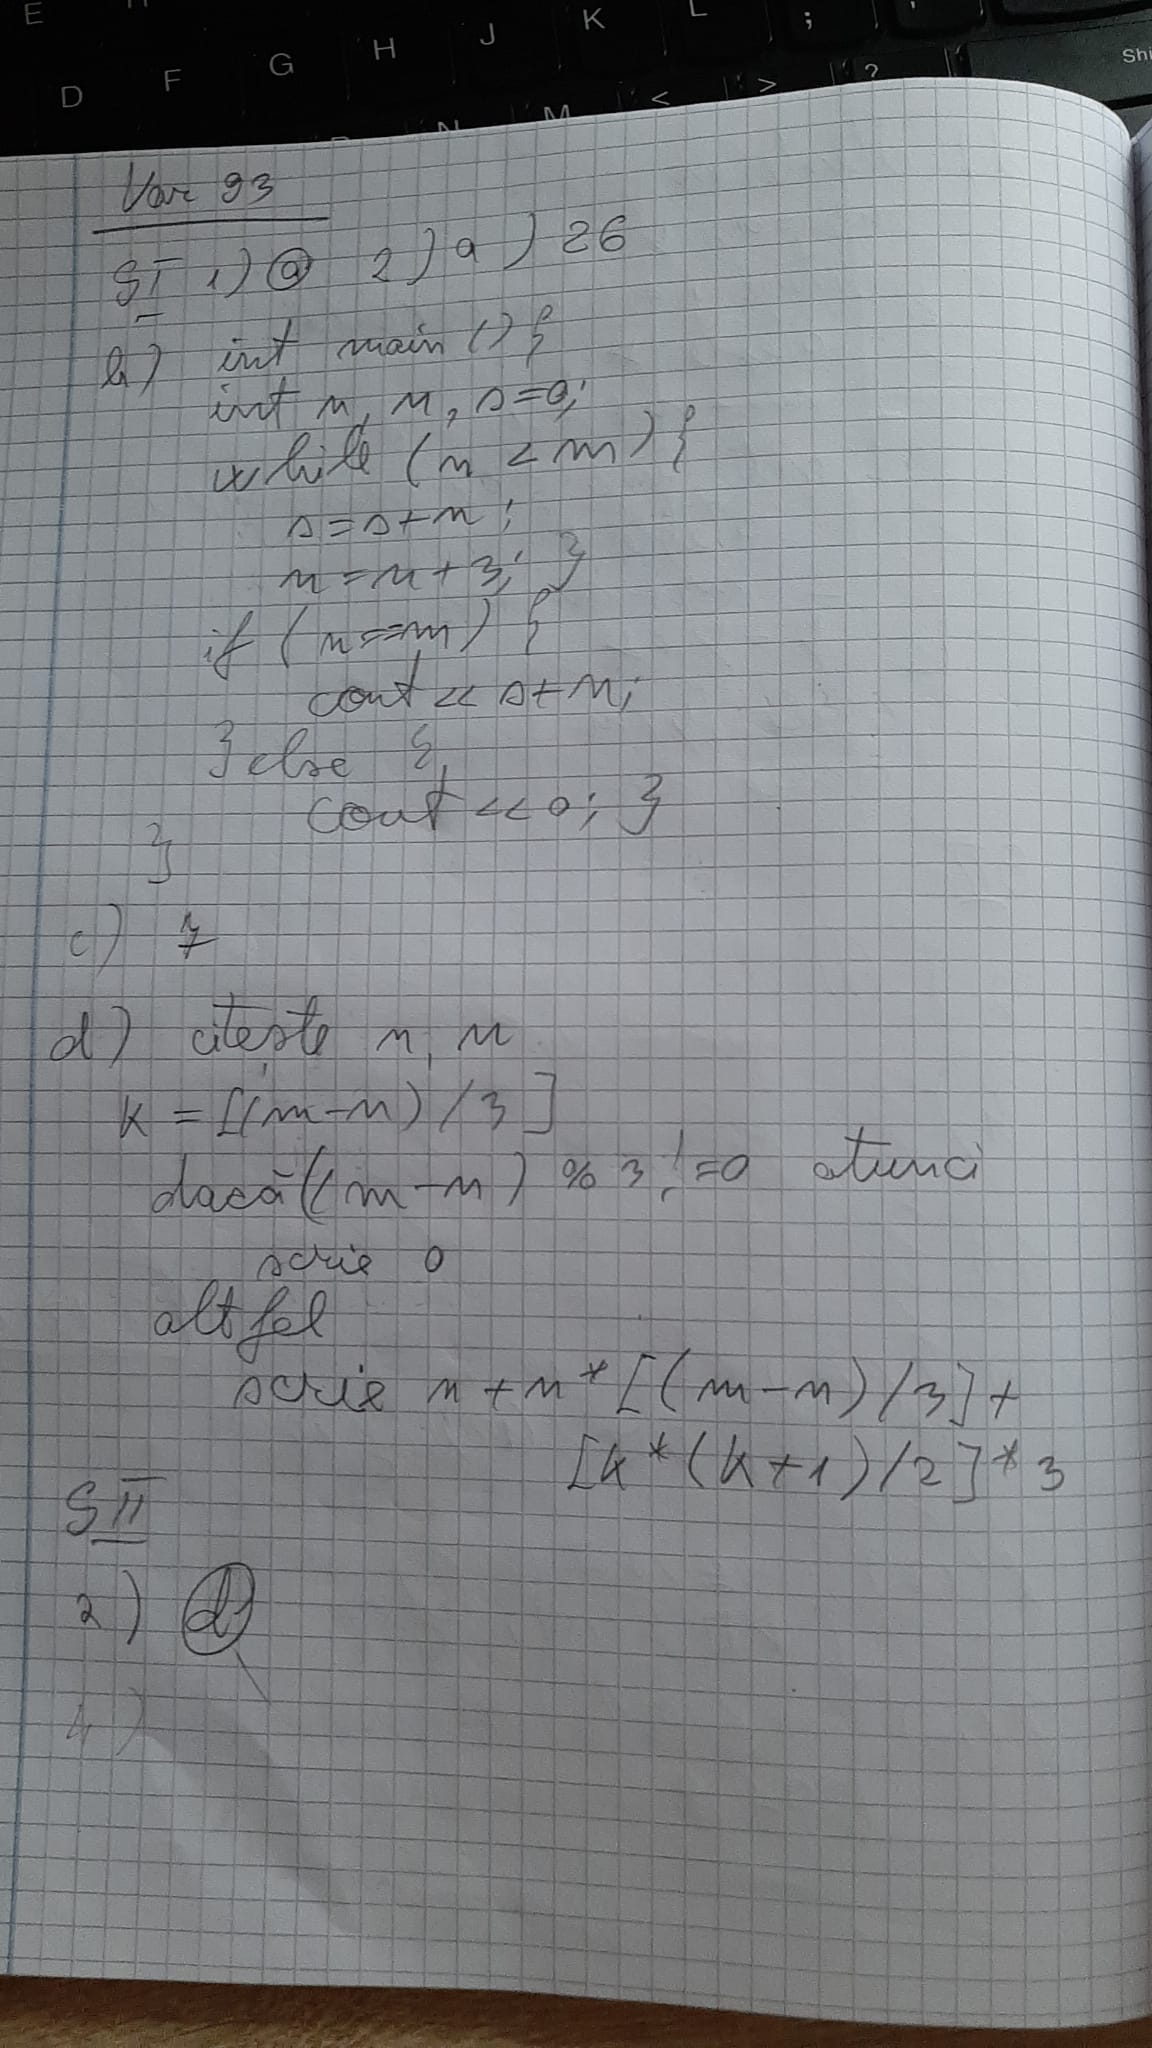 E
K
L
;
D
F
G
H
J
Shi
M
<
>
?
Var 93
SI 1) a 2) a) 26
b) int main () {
int n, m, s=0;
while (n < m) {
s=s+n;
n=n+3; }
if (n==m) {
cout << s+n;
}else {
cout <<0; }
}
c) 7
d) citește n, m
k = [(m-n)/3]
dacă((m-n) % 3!=0 atunci
scrie 0
altfel
scrie n+n*[(m-n)/3]+
[k*(k+1)/2]*3
SII
2) d
4)